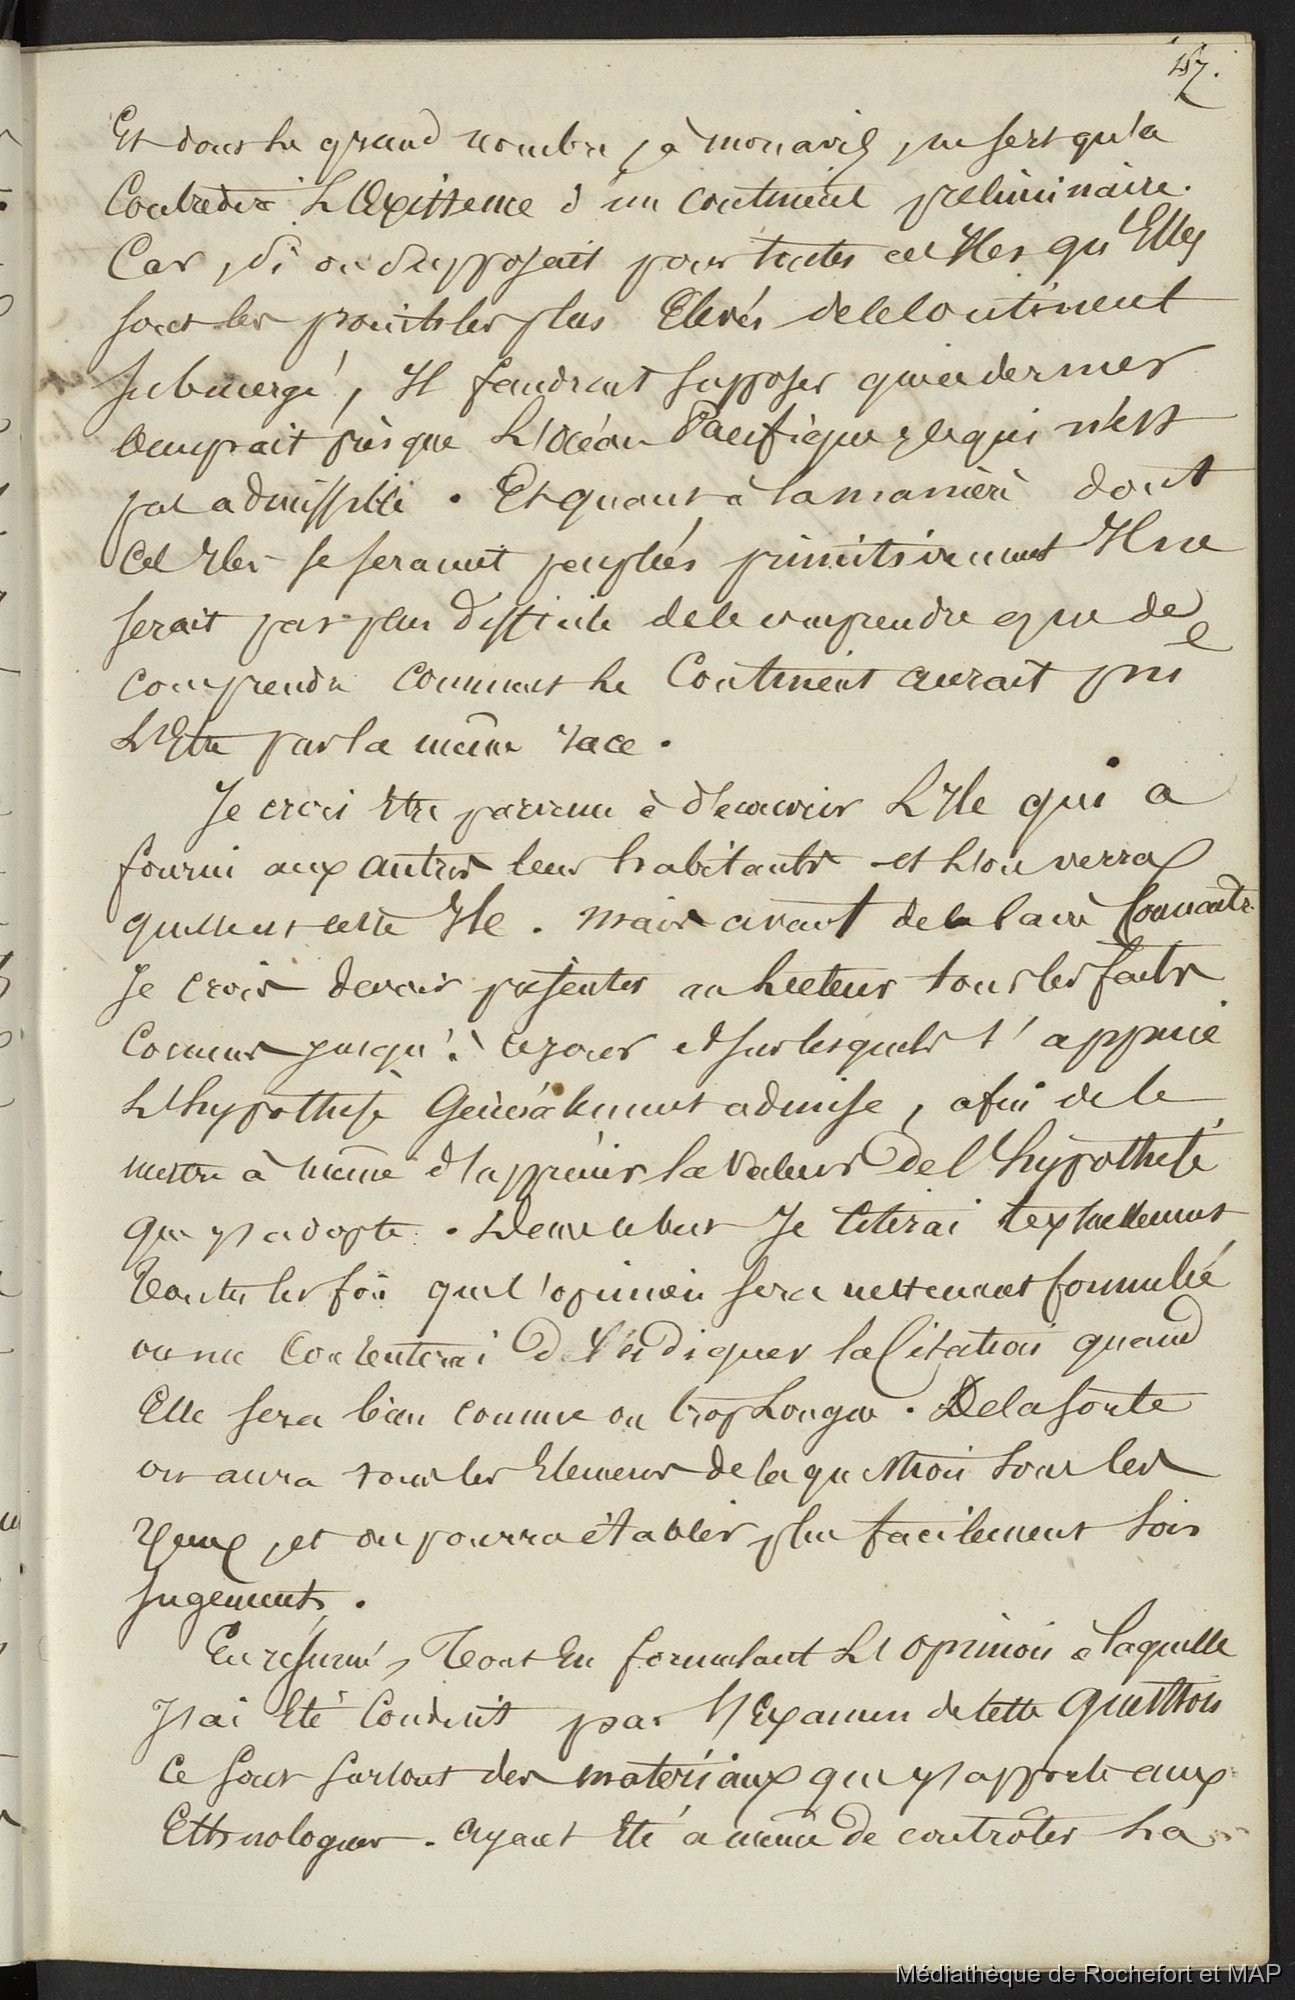 157.
Et dont le grand nombre, à mon avis, ne sert qu'à
Contredire L'Existence d'un continent preliminaire.
Car, si on supposait pour toutes ces Iles qu'Elles
sont les points les plus Elevés de ce Continent
submergé, Il faudrait supposer que ce dernier
occupait presque L'Océan Pacifique, ce qui n'est
pas admissible. Et quant à la manière dont
ces Iles se seraient peuplées primitivement Il ne
serait pas plus difficile de le comprendre que de
comprendre comment le Continent aurait pu
L'Etre par la même race.
Je crois Etre parvenu à découvrir L'Ile qui a
fourni aux autres leurs habitants et L'on verra
quelle est cette Ile. Mais avant de la faire Connaitre
Je crois devoir présenter au Lecteur tous les faits
Connus jusqu'à ce jour et sur lesquels s'appuie
L'hypothèse Généralement admise, afin de le
mettre à même d'apprécier la Valeur de l'hypothèse
que j'adopte. Dans ce but Je Citerai textuellement
toutes les fois que l'opinion sera nettement formulée
ou me Contenterai d'indiquer la Citation quand
Elle sera bien connue ou trop Longue. De la sorte
on aura tous les Elemens de la question sous les
Yeux, et on pourra établir plus facilement son
Jugement.
En résumé, Tout En formulant L'opinion à laquelle
J'ai Eté Conduit par l'Examen de cette Question
Ce sont surtout des matériaux que j'apporte aux
Ethnologues. Ayant Eté à même de contrôler La
Médiathèque de Rochefort et MAP